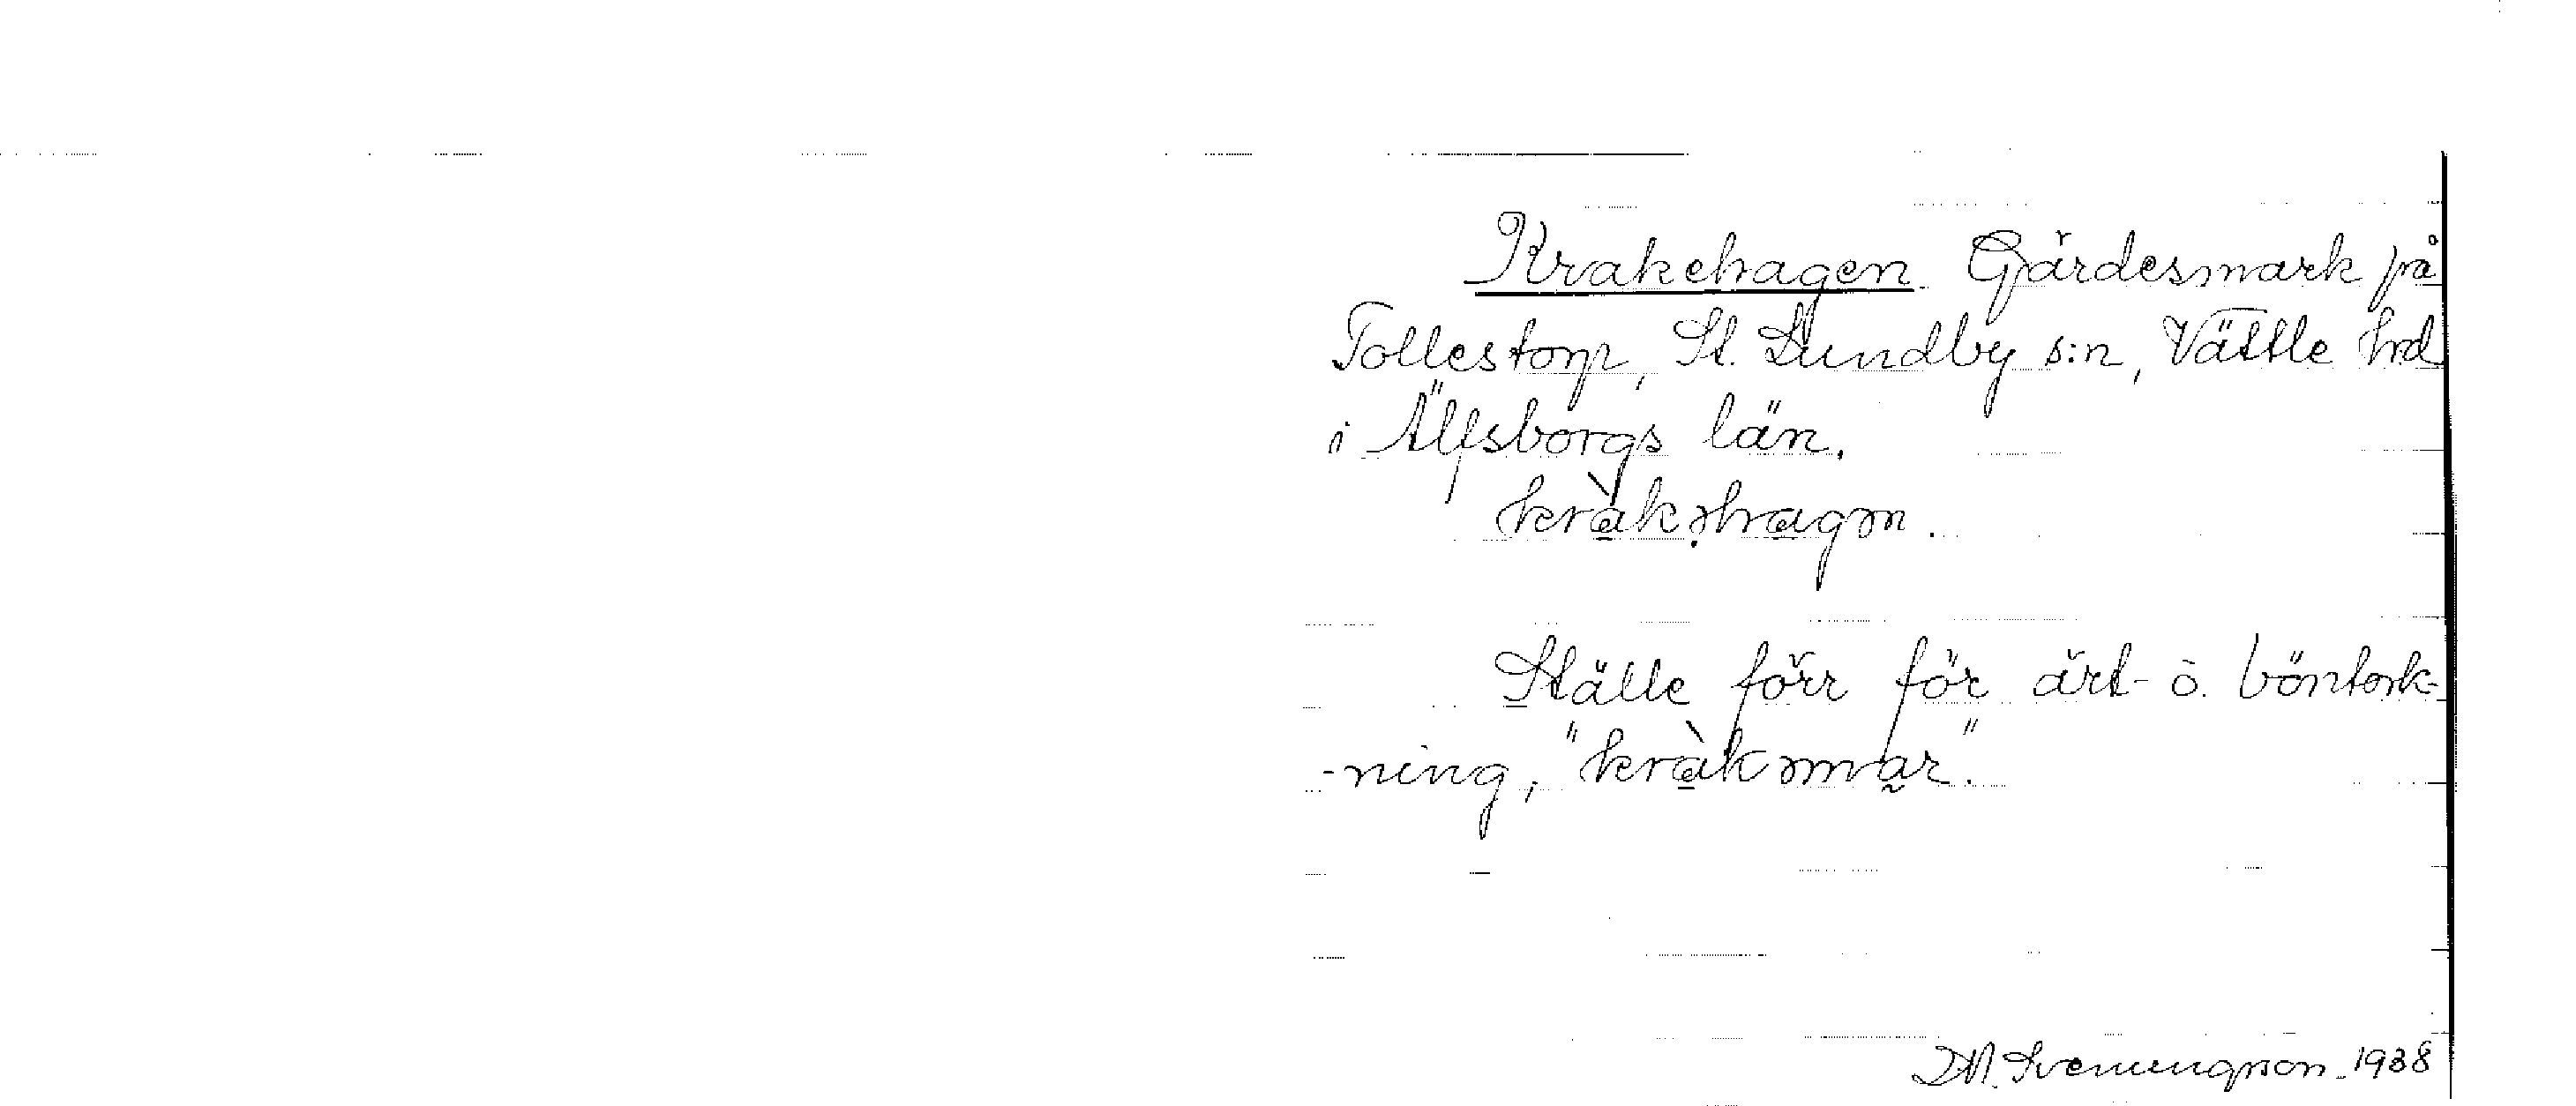 Krakehagen. Gärdesmark på
Tollestorp, St. Lundby s:n, Vättle hrd
i Älfsborgs län.
kràkəhagən.
Ställe förr för ärt- o. böntork-
-ning, "kràkənvar".
1938